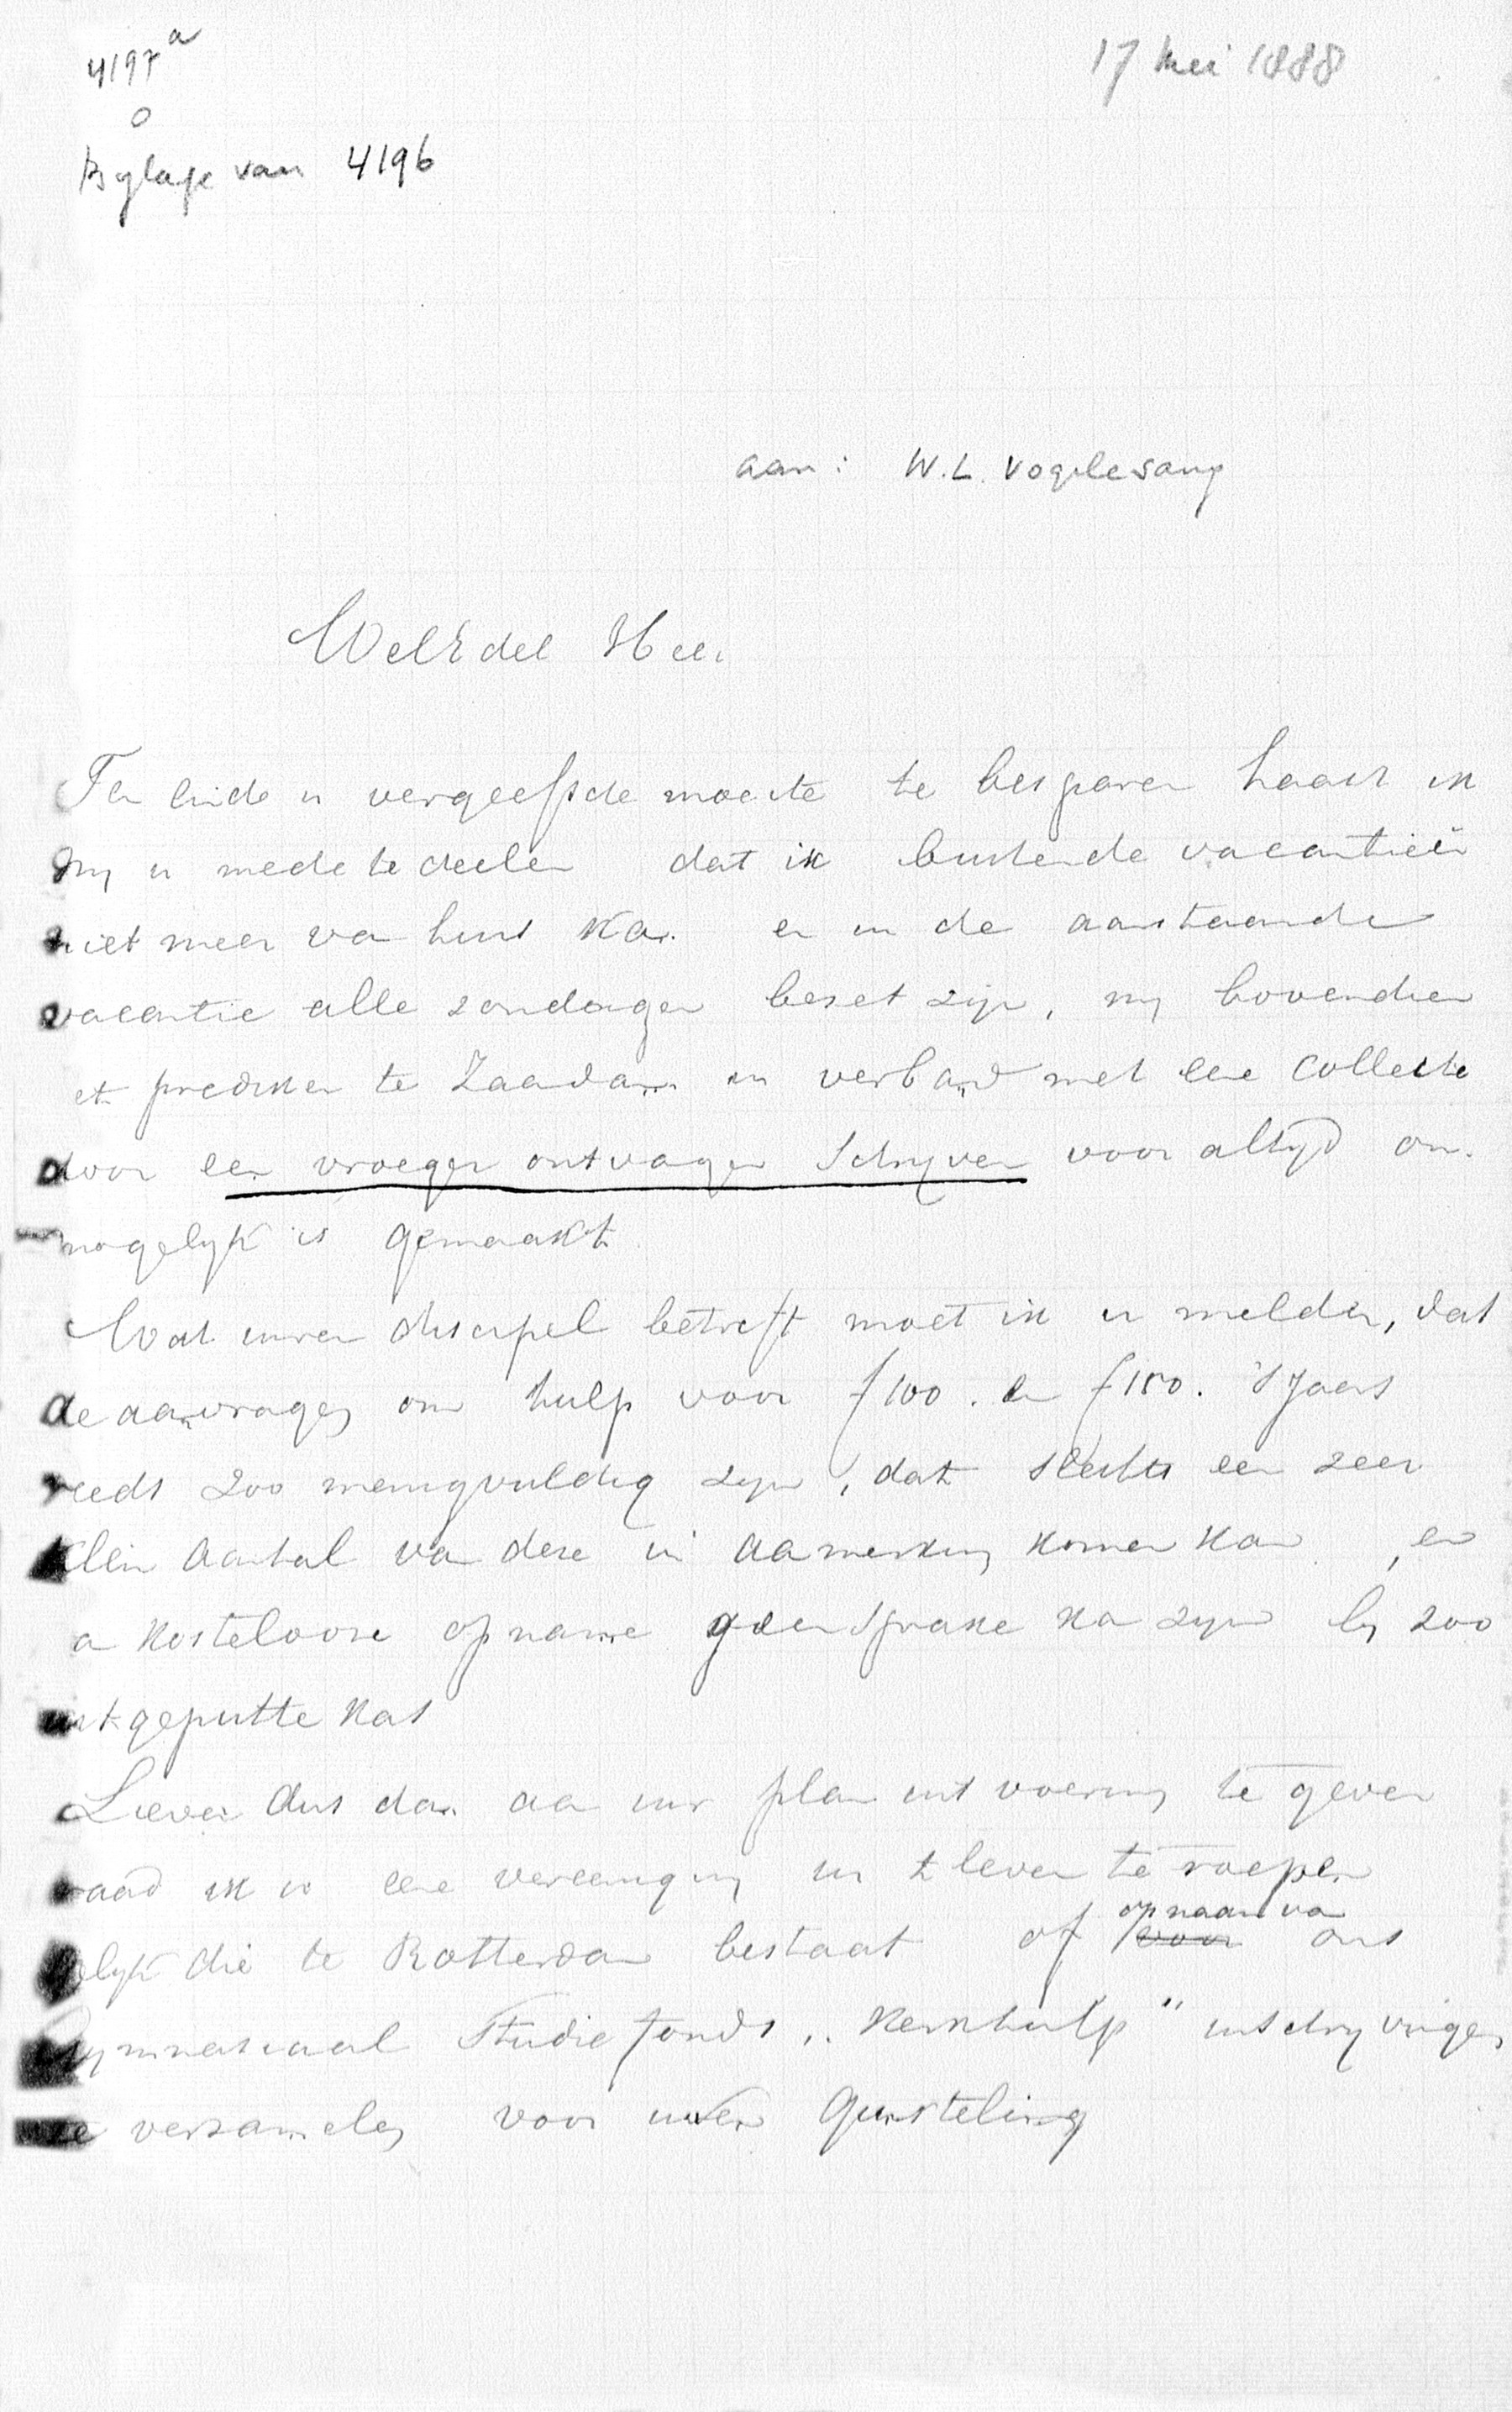 4197 a
0
Bylage van 4196
17 Mei 1888
aan: W.L. Vogelesang
WelEdel Heer
Ten einde u vergeefsche moeite te besparen haast ik
my u mede te deelen dat ik buitende vacantiën
niet meer van huis kan en in de aanstaande
vacantie alle zondagen bezet zijn, my bovendien
et prediken te Zaandam in verband met eene collecte
door een vroeger ontvangen schrijven voor altyd on-
mogelyk is gemaakt
Wat uwen discipel betreft moet ik u melden, dat
de aanvragen om hulp voor f 100. en f 150. 's Jaars
reeds zoo menigvuldig zyn, dat slechts een zeer
klein aantal van deze in aanmerking komen kan, en
an kostelooze opname geen sprake kan zyn by zoo
uitgeputte kas
Liever dus dan aan uw plan uitvoering te geven
raad ik u eene vereeniging in 't leven te roepen
gelyk die te Rotterdam bestaat of voor op naam van ons
Gymnasiaal Studiefonds „Kerkhulp" inschryvingen
te verzamelen voor uwen Gunsteling